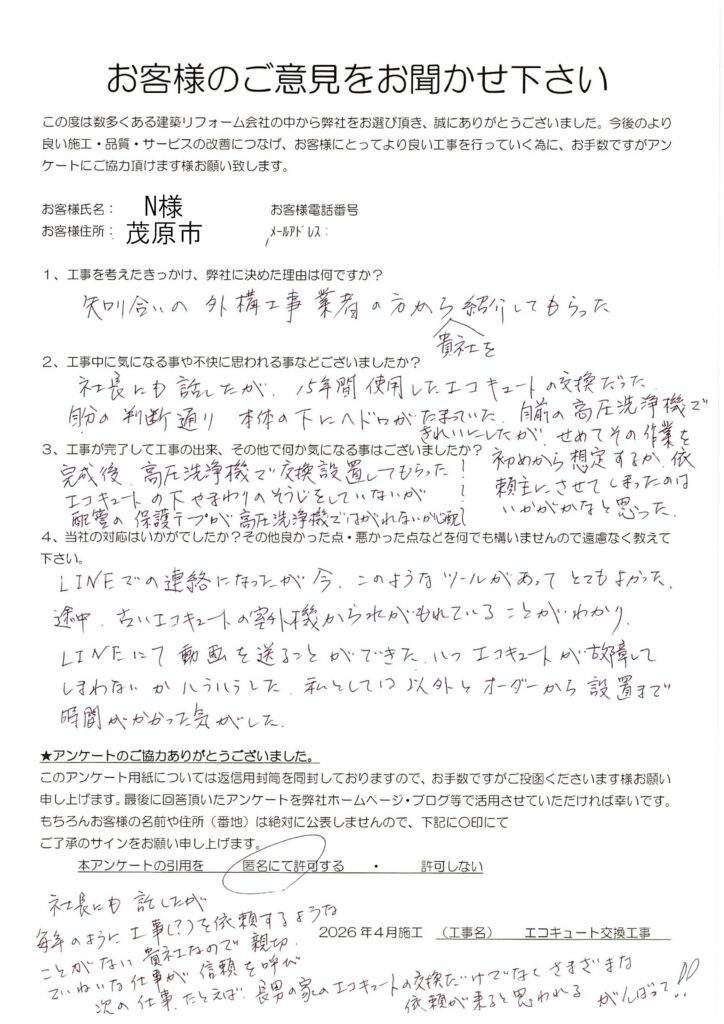 お客様のご意見をお聞かせ下さい
この度は数多くある建築リフォーム会社の中から弊社をお選び頂き、誠にありがとうございました。今後のより
良い施工・品質・サービスの改善につなげ、お客様にとってより良い工事を行っていく為に、お手数ですがアン
ケートにご協力頂けます様お願い致します。
お客様氏名： N様 お客様電話番号
お客様住所： 茂原市 ﾒｰﾙｱﾄﾞﾚｽ：
1、工事を考えたきっかけ、弊社に決めた理由は何ですか？
知り合いの 外構工事業者の方から紹介してもらった
貴社を
2、工事中に気になる事や不快に思われる事などございましたか？
社長にも話したが、15年間使用したエコキュートの交換だった
自分の判断通り 本体の下にヘドロがたまっていた。自前の高圧洗浄機で
きれいにしたが、せめてその作業を
初めから想定するか、依
頼主にさせてしまったのは
いかがかなと思った。
3、工事が完了して工事の出来、その他で何か気になる事はございましたか？
完成後、高圧洗浄機で交換設置してもらった
エコキュートの下やまわりのそうじをしていないが
配管の保護テープが高圧洗浄機ではがれないか心配
4、当社の対応はいかがでしたか？その他良かった点・悪かった点などを何でも構いませんので遠慮なく教えて
下さい。
LINEでの連絡になったが今、このようなツールがあってとてもよかった。
途中、古いエコキュートの室外機から水がもれていることがわかり、
LINEにて動画を送ることができた。いつエコキュートが故障して
しまわないかハラハラした。私としては以外とオーダーから設置まで
時間がかかった気がした。
★アンケートのご協力ありがとうございました。
このアンケート用紙については返信用封筒を同封しておりますので、お手数ですがご投函くださいます様お願い
申し上げます。最後に回答頂いたアンケートを弊社ホームページ・ブログ等で活用させていただければ幸いです。
もちろんお客様の名前や住所（番地）は絶対に公表しませんので、下記に〇印にて
ご了承のサインをお願い申し上げます。
本アンケートの引用を 匿名にて許可する ・ 許可しない
2026年4月施工 （工事名） エコキュート交換工事
社長にも話したが
毎年のように工事(?)を依頼するような
ことがない貴社なので親切、
ていねいな仕事が信頼を呼び
次の仕事、たとえば、長男の家のエコキュートの交換だけでなくさまざまな
依頼が来ると思われる がんばって!!